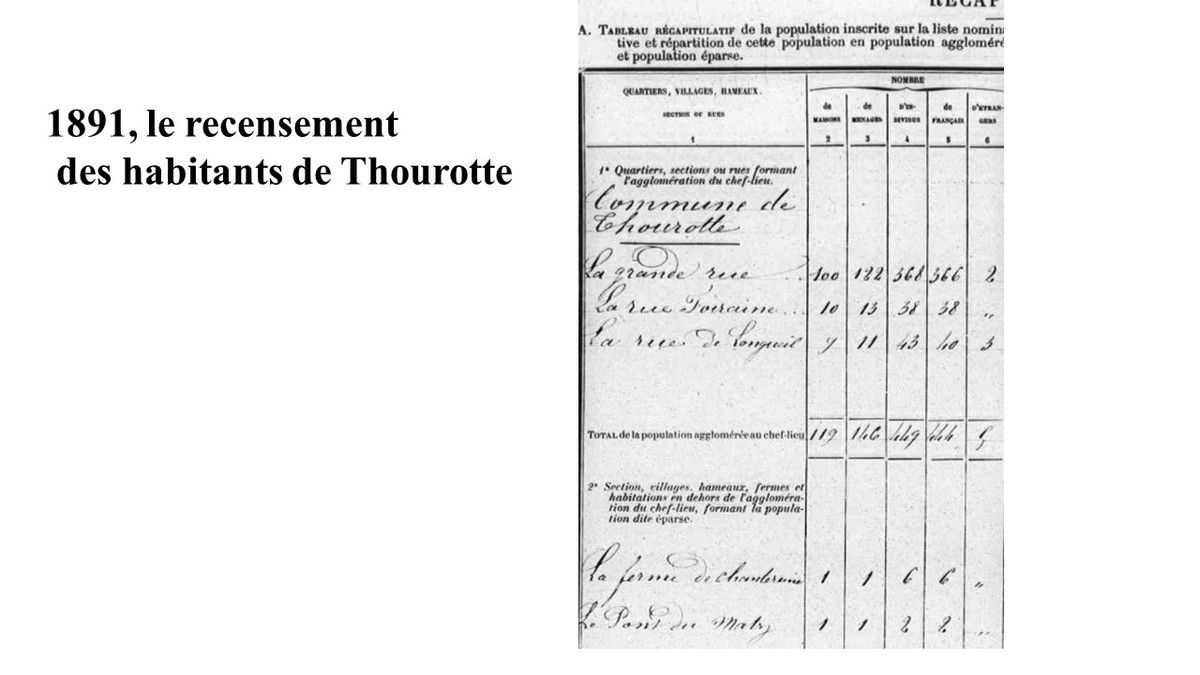 1891, le recensement
des habitants de Thourotte
A. TABLEAU RÉCAPITULATIF de la population inscrite sur la liste nomina
tive et répartition de cette population en population aggloméré
et population éparse.
QUARTIERS, VILLAGES, HAMEAUX.
SECTION OU RUES
1
NOMBRE
de MAISONS 2
de MÉNAGES 3
D'IN-DIVIDUS 4
de FRANÇAIS 5
D'ÉTRAN-GERS 6
1° Quartiers, sections ou rues formant
l'agglomération du chef-lieu.
Commune de
Thourotte
La grande rue .. 100 122 368 366 2
La rue ... 10 13 38 38 "
La rue de Longueil 9 11 43 40 3
TOTAL de la population agglomérée au chef-lieu 119 146 449 444 5
2° Section, villages, hameaux, fermes et
habitations en dehors de l'aggloméra-
tion du chef-lieu, formant la popula-
tion dite éparse.
La ferme de 1 1 6 6 "
Le Pont du Matz 1 1 2 2 "